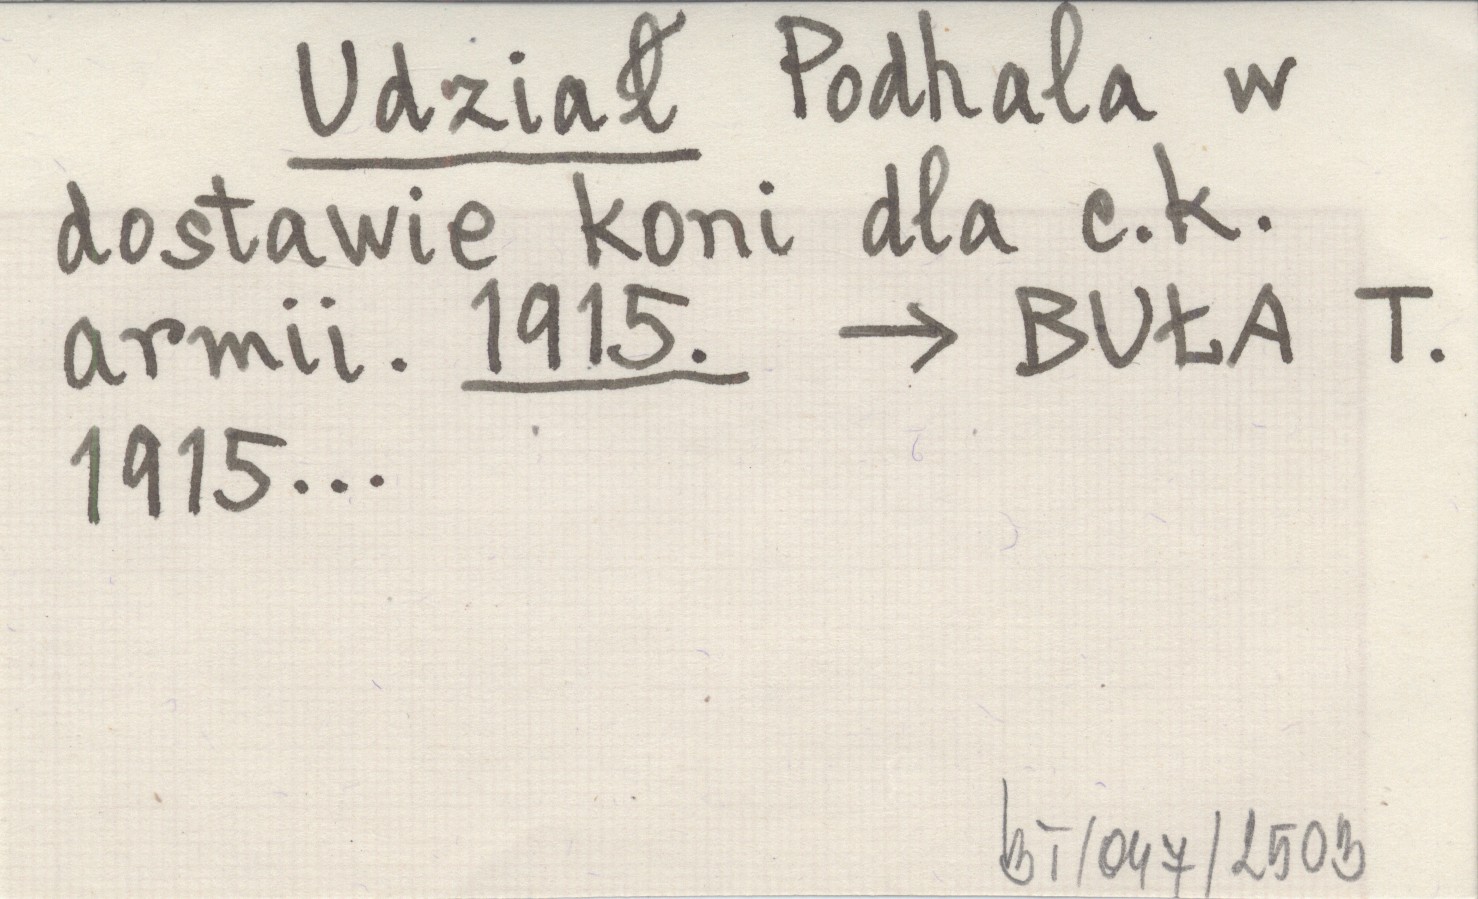 Udział Podhala w
dostawie koni dla c.k.
armii. 1915. → BUŁA T.
1915...
BT/047/2503